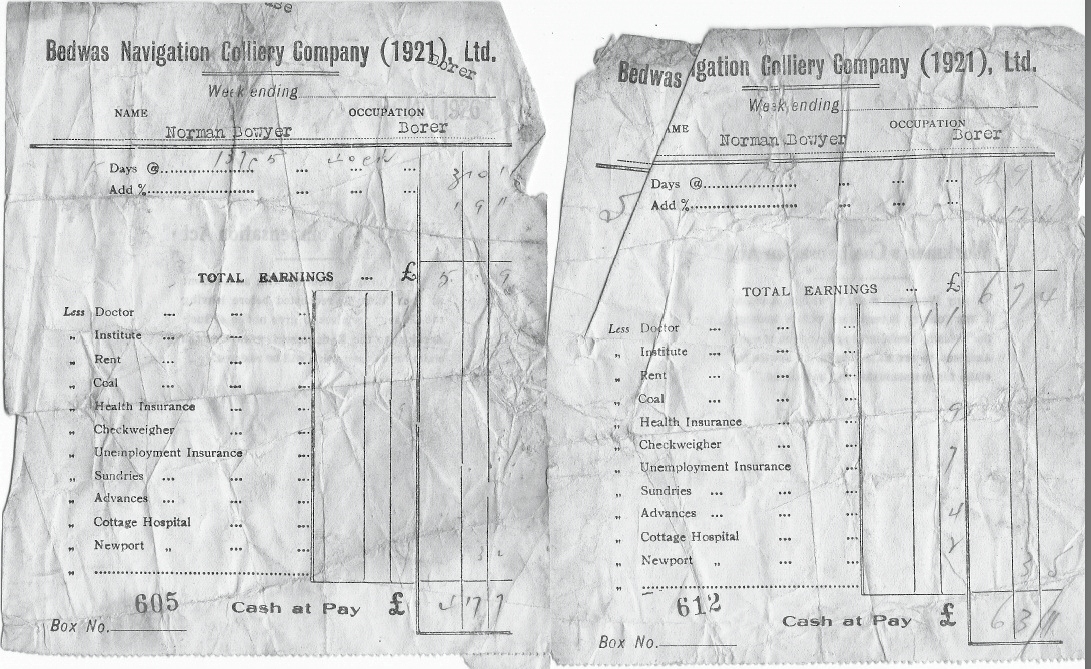 Bedwas Navigation Colliery Company (1921), Ltd.
Borer
Week ending
NAME OCCUPATION
Norman Bowyer Borer
Days @
Add %
TOTAL EARNINGS ... £
Less Doctor ... ... ...
„ Institute ... ... ...
„ Rent ... ... ...
„ Coal ... ... ...
„ Health Insurance ... ...
„ Checkweigher ... ...
„ Unemployment Insurance ...
„ Sundries ... ... ...
„ Advances ... ... ...
„ Cottage Hospital ... ...
„ Newport „ ... ...
„
605 Cash at Pay £
Box No.
Bedwas igation Colliery Company (1921), Ltd.
Week ending
AME OCCUPATION
Norman Bowyer Borer
Days @
Add %
TOTAL EARNINGS ... £ 6 7 4
Less Doctor ... ... ...
„ Institute ... ... ...
„ Rent ... ... ...
„ Coal ... ... ...
„ Health Insurance ... ... 9
„ Checkweigher ... ...
„ Unemployment Insurance ... 7
„ Sundries ... ... ...
„ Advances ... ... ... 4
„ Cottage Hospital ... ... 2
„ Newport „ ... ... 3 5
„
612 Cash at Pay £ 6 3 11
Box No.